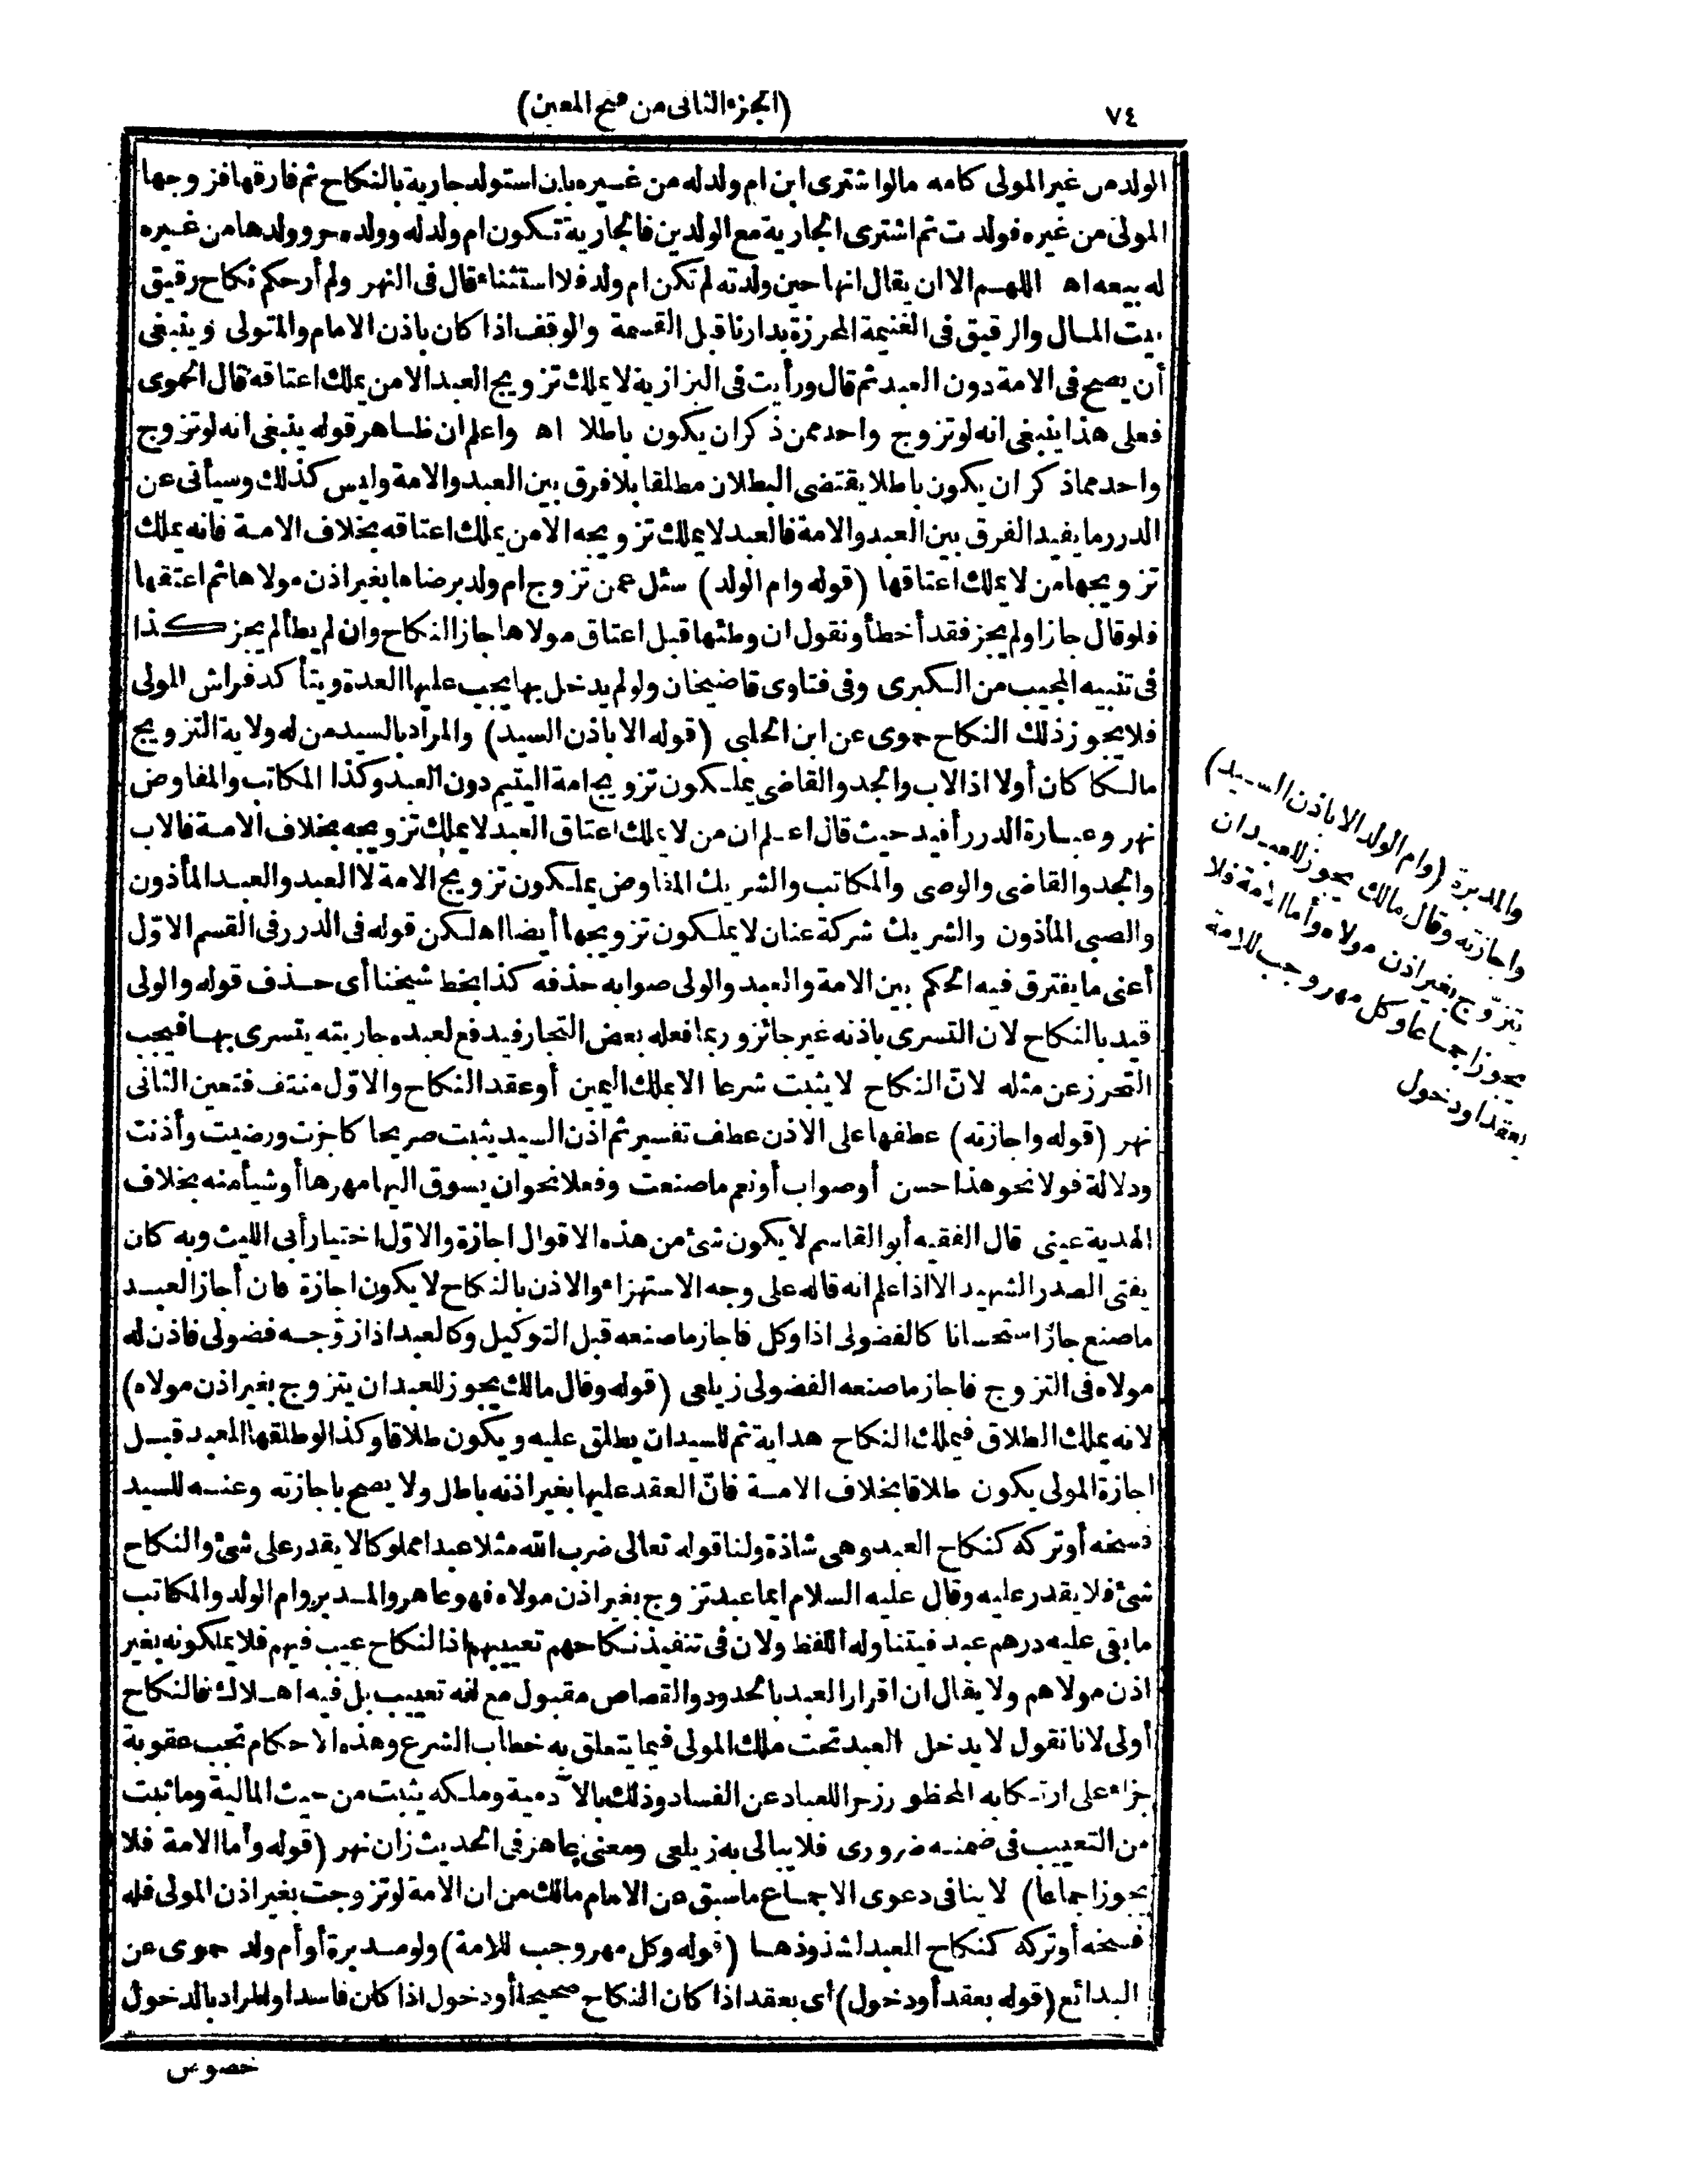 ٧٤
(الجزء الثانى من فتح المعين)
الولد من غير المولى كامه مالوا شترى ابن ام ولد له من غيره بان استولد جارية بالنكاح ثم فارقها فزوجها
المولى من غيره فولدت ثم اشترى الجارية مع الولدين فالجارية تكون ام ولد له وولده حر وولدها من غيره
له بيعه اه اللهم الا ان يقال انها حين ولدته لم تكن ام ولد فلا استثناء قال فى النهر ولم أر حكم نكاح رقيق
بيت المال والرقيق فى الغنيمة المحرزة بدارنا قبل القسمة والوقف اذا كان باذن الامام والمتولى وينبغى
أن يصح فى الامة دون العبد ثم قال ورأيت فى البزازية لا يملك تزويج العبد الا من يملك اعتاقه قال الحموى
فعلى هذا ينبغى انه لو تزوج واحد ممن ذكر ان يكون باطلا اه واعلم ان ظاهر قوله ينبغى انه لو تزوج
واحد مماذكر ان يكون باطلا يقتضى البطلان مطلقا بلا فرق بين العبد والامة وليس كذلك وسيأتى عن
الدرر ما يفيد الفرق بين العبد والامة فالعبد لا يملك تزويجه الا من يملك اعتاقه بخلاف الامة فانه يملك
تزويجها من لا يملك اعتاقها (قوله وام الولد) سئل عمن تزوج ام ولد برضاها بغير اذن مولاها ثم اعتقها
فلو قال جاز اولم يجز فقد أخطأ ونقول ان وطئها قبل اعتاق مولاها جاز النكاح وان لم يطألم يجز كذا
فى تنبيه المجيب من الكبرى وفى فتاوى قاضيخان ولو لم يدخل بها يجب عليها العدة ويتأكد فراش المولى
فلا يجوز ذلك النكاح حموى عن ابن الحلبى (قوله الا باذن السيد) والمراد بالسيد من له ولاية التزويج
مالكا كان أولا اذ الاب والجد والقاضى يملكون تزويج امة اليتيم دون العبد وكذا المكاتب والمفاوض
نهر وعبارة الدرر أفيد حيث قال اعلم ان من لا يملك اعتاق العبد لا يملك تزويجه بخلاف الامة فالاب
والجد والقاضى والوصى والمكاتب والشريك المفاوض يملكون تزويج الامة لا العبد والعبد المأذون
والصبى المأذون والشريك شركة عنان لا يملكون تزويجها أيضا اه لكن قوله فى الدرر فى القسم الاوّل
أعنى ما يفترق فيه الحكم بين الامة والعبد والولى صوابه حذفه كذا بخط شيخنا أى حذف قوله والولى
قيد بالنكاح لان التسرى باذنه غير جائز وربما فعله بعض التجار فيدفع لعبده جاريته يتسرى بها فيجب
التحرز عن مثله لانّ النكاح لا يثبت شرعا الا بملك اليمين أو عقد النكاح والاوّل منتف فتعين الثانى
نهر (قوله واجازته) عطفها على الاذن عطف تفسير ثم اذن السيد يثبت صريحا كاجزت ورضيت وأذنت
ودلالة قولا نحو هذا حسن أو صواب أو نعم ما صنعت وفعلا نحوان يسوق اليها مهرها أو شيأ منه بخلاف
الهدية عينى قال الفقيه أبو القاسم لا يكون شئ من هذه الاقوال اجازة والاوّل اختيار أبى الليث وبه كان
يفتى الصدر الشهيد الا اذا علم انه قاله على وجه الاستهزاء والاذن بالنكاح لا يكون اجازة فان أجاز العبد
ما صنع جاز استحسانا كالفضولى اذا وكل فاجاز ما صنعه قبل التوكيل وكالعبد اذا زوّجه فضولى فاذن له
مولاه فى التزوج فاجاز ما صنعه الفضولى زيلعى (قوله وقال مالك يجوز للعبد ان يتزوج بغير اذن مولاه)
لانه يملك الطلاق فيملك النكاح هداية ثم للسيد ان يطلق عليه ويكون طلاقا وكذا لو طلقها العبد قبل
اجازة المولى يكون طلاقا بخلاف الامة فانّ العقد عليها بغير اذنه باطل ولا يصح باجازته وعنه للسيد
فسخه أو تركه كنكاح العبد وهى شاذة ولنا قوله تعالى ضرب الله مثلا عبدا مملوكا لا يقدر على شئ والنكاح
شئ فلا يقدر عليه وقال عليه السلام ايما عبد تزوج بغير اذن مولاه فهو عاهر والمدبر وام الولد والمكاتب
ما بقى عليه درهم عبد فيتناوله اللفظ ولان فى تنفيذ نكاحهم تعييبهم اذ النكاح عيب فيهم فلا يملكونه بغير
اذن مولاهم ولا يقال ان اقرار العبد بالحدود والقصاص مقبول مع انه تعييب بل فيه اهلاك فالنكاح
أولى لانا نقول لا يدخل العبد تحت ملك المولى فيما يتعلق به خطاب الشرع وهذه الاحكام تجب عقوبة
جزاء على ارتكابه المحظور زجرا للعباد عن الفساد وذلك بالآدمية وملكه يثبت من حيث المالية وما ثبت
من التعييب فى ضمنه ضرورى فلا يبالى به زيلعى ومعنى عاهر فى الحديث زان نهر (قوله وأما الامة فلا
يجوز اجماعا) لا ينافى دعوى الاجماع ما سبق عن الامام مالك من ان الامة لو تزوجت بغير اذن المولى فله
فسخه أو تركه كنكاح العبد لشذوذها (قوله وكل مهر وجب للامة) ولو مدبرة أو أم ولد حموى عن
البدائع (قوله بعقد أو دخول) أى بعقد اذا كان النكاح صحيحا أو دخول اذا كان فاسدا والمراد بالدخول
خصوص
والمدبرة (وام الولد الا باذن السيد)
واجازته وقال مالك يجوز للعبد ان
يتزوّج بغير اذن مولاه وأما الامة فلا
يجوز اجماعا وكل مهر وجب للامة
بعقد او دخول